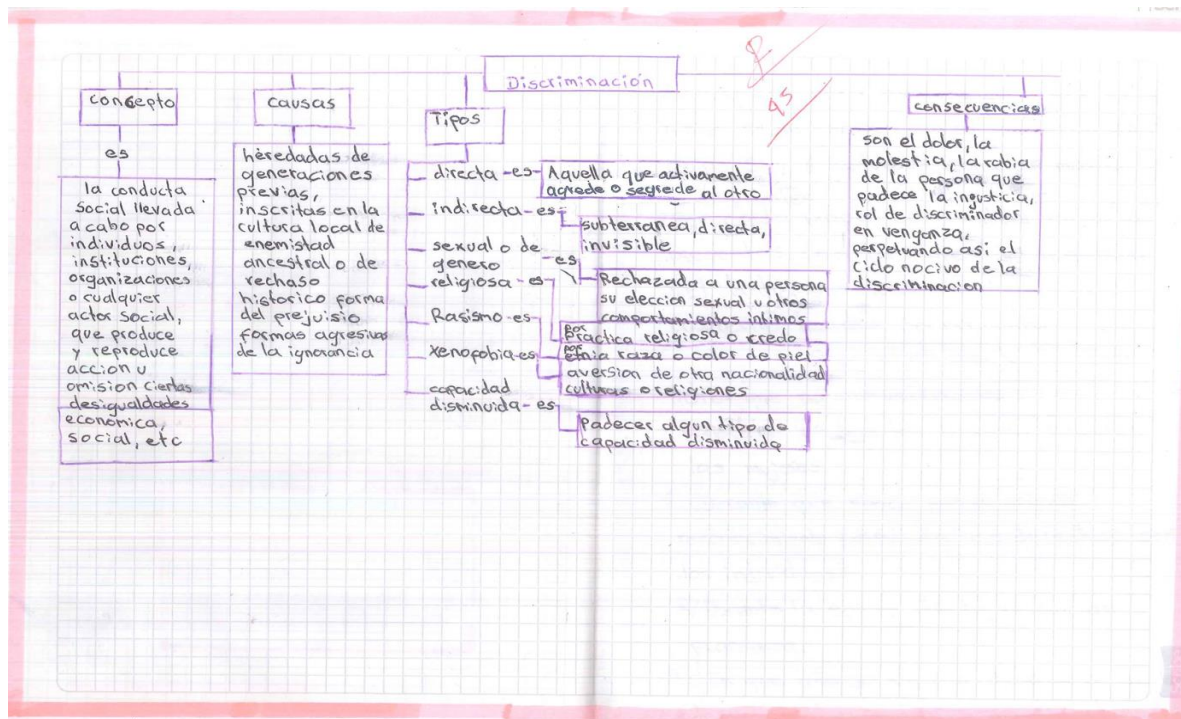 Discriminación
R
95
concepto
es
la conducta
social llevada
a cabo por
individuos,
instituciones,
organizaciones
o cualquier
actor social,
que produce
y reproduce
accion u
omision ciertas
desigualdades
económica,
social, etc
causas
heredadas de
generaciones
previas,
inscritas en la
cultura local de
enemistad
ancestral o de
rechaso
historico forma
del prejuisio
formas agresivas
de la ignorancia
Tipos
directa-es-
Aquella que activamente
agrede o segrede al otro
indirecta-es-
subterranea, directa,
invisible
sexual o de
genero
-es
Rechazada a una persona
su eleccion sexual u otros
comportamientos intimos
religiosa-es
por
practica religiosa o credo
Rasismo-es
por
etnia raza o color de piel
xenofobia-es
aversion de otra nacionalidad
culturas o religiones
capacidad
disminuida-es
padecer algun tipo de
capacidad disminuida
consecuencias
son el dolor, la
molestia, la rabia
de la persona que
padece la ingusticia,
rol de discriminador
en venganza,
perpetuando asi el
ciclo nocivo de la
discriminacion